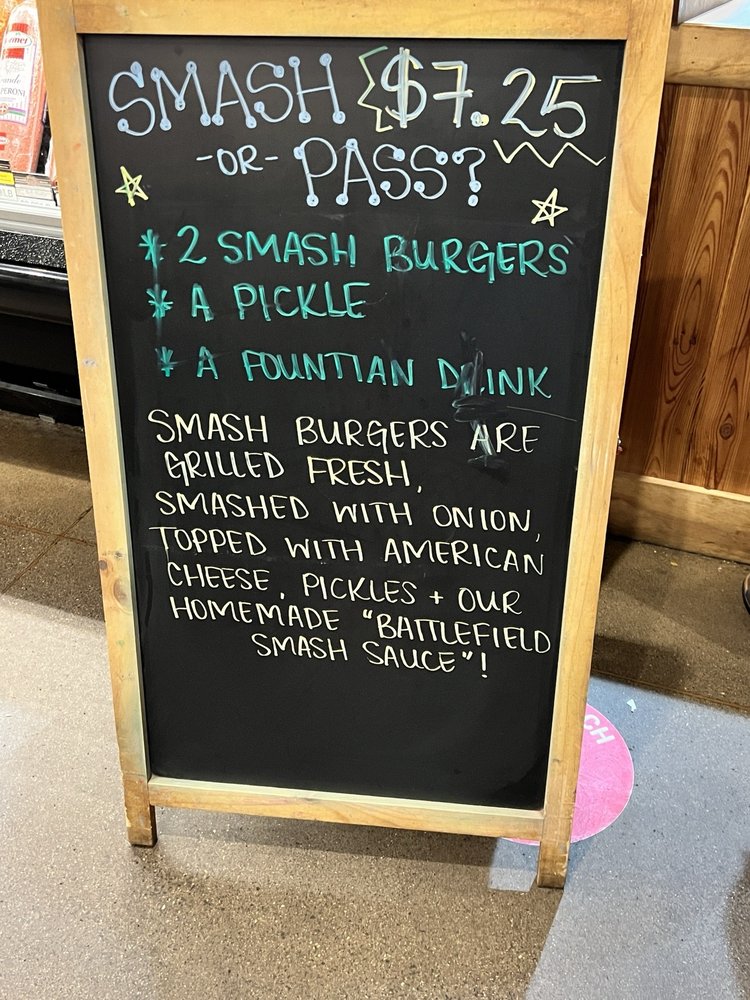 SMASH $7.25
-OR- PASS?
* 2 SMASH BURGERS
* A PICKLE
* A FOUNTIAN DRINK
SMASH BURGERS ARE
GRILLED FRESH,
SMASHED WITH ONION,
TOPPED WITH AMERICAN
CHEESE, PICKLES + OUR
HOMEMADE "BATTLEFIELD
SMASH SAUCE"!